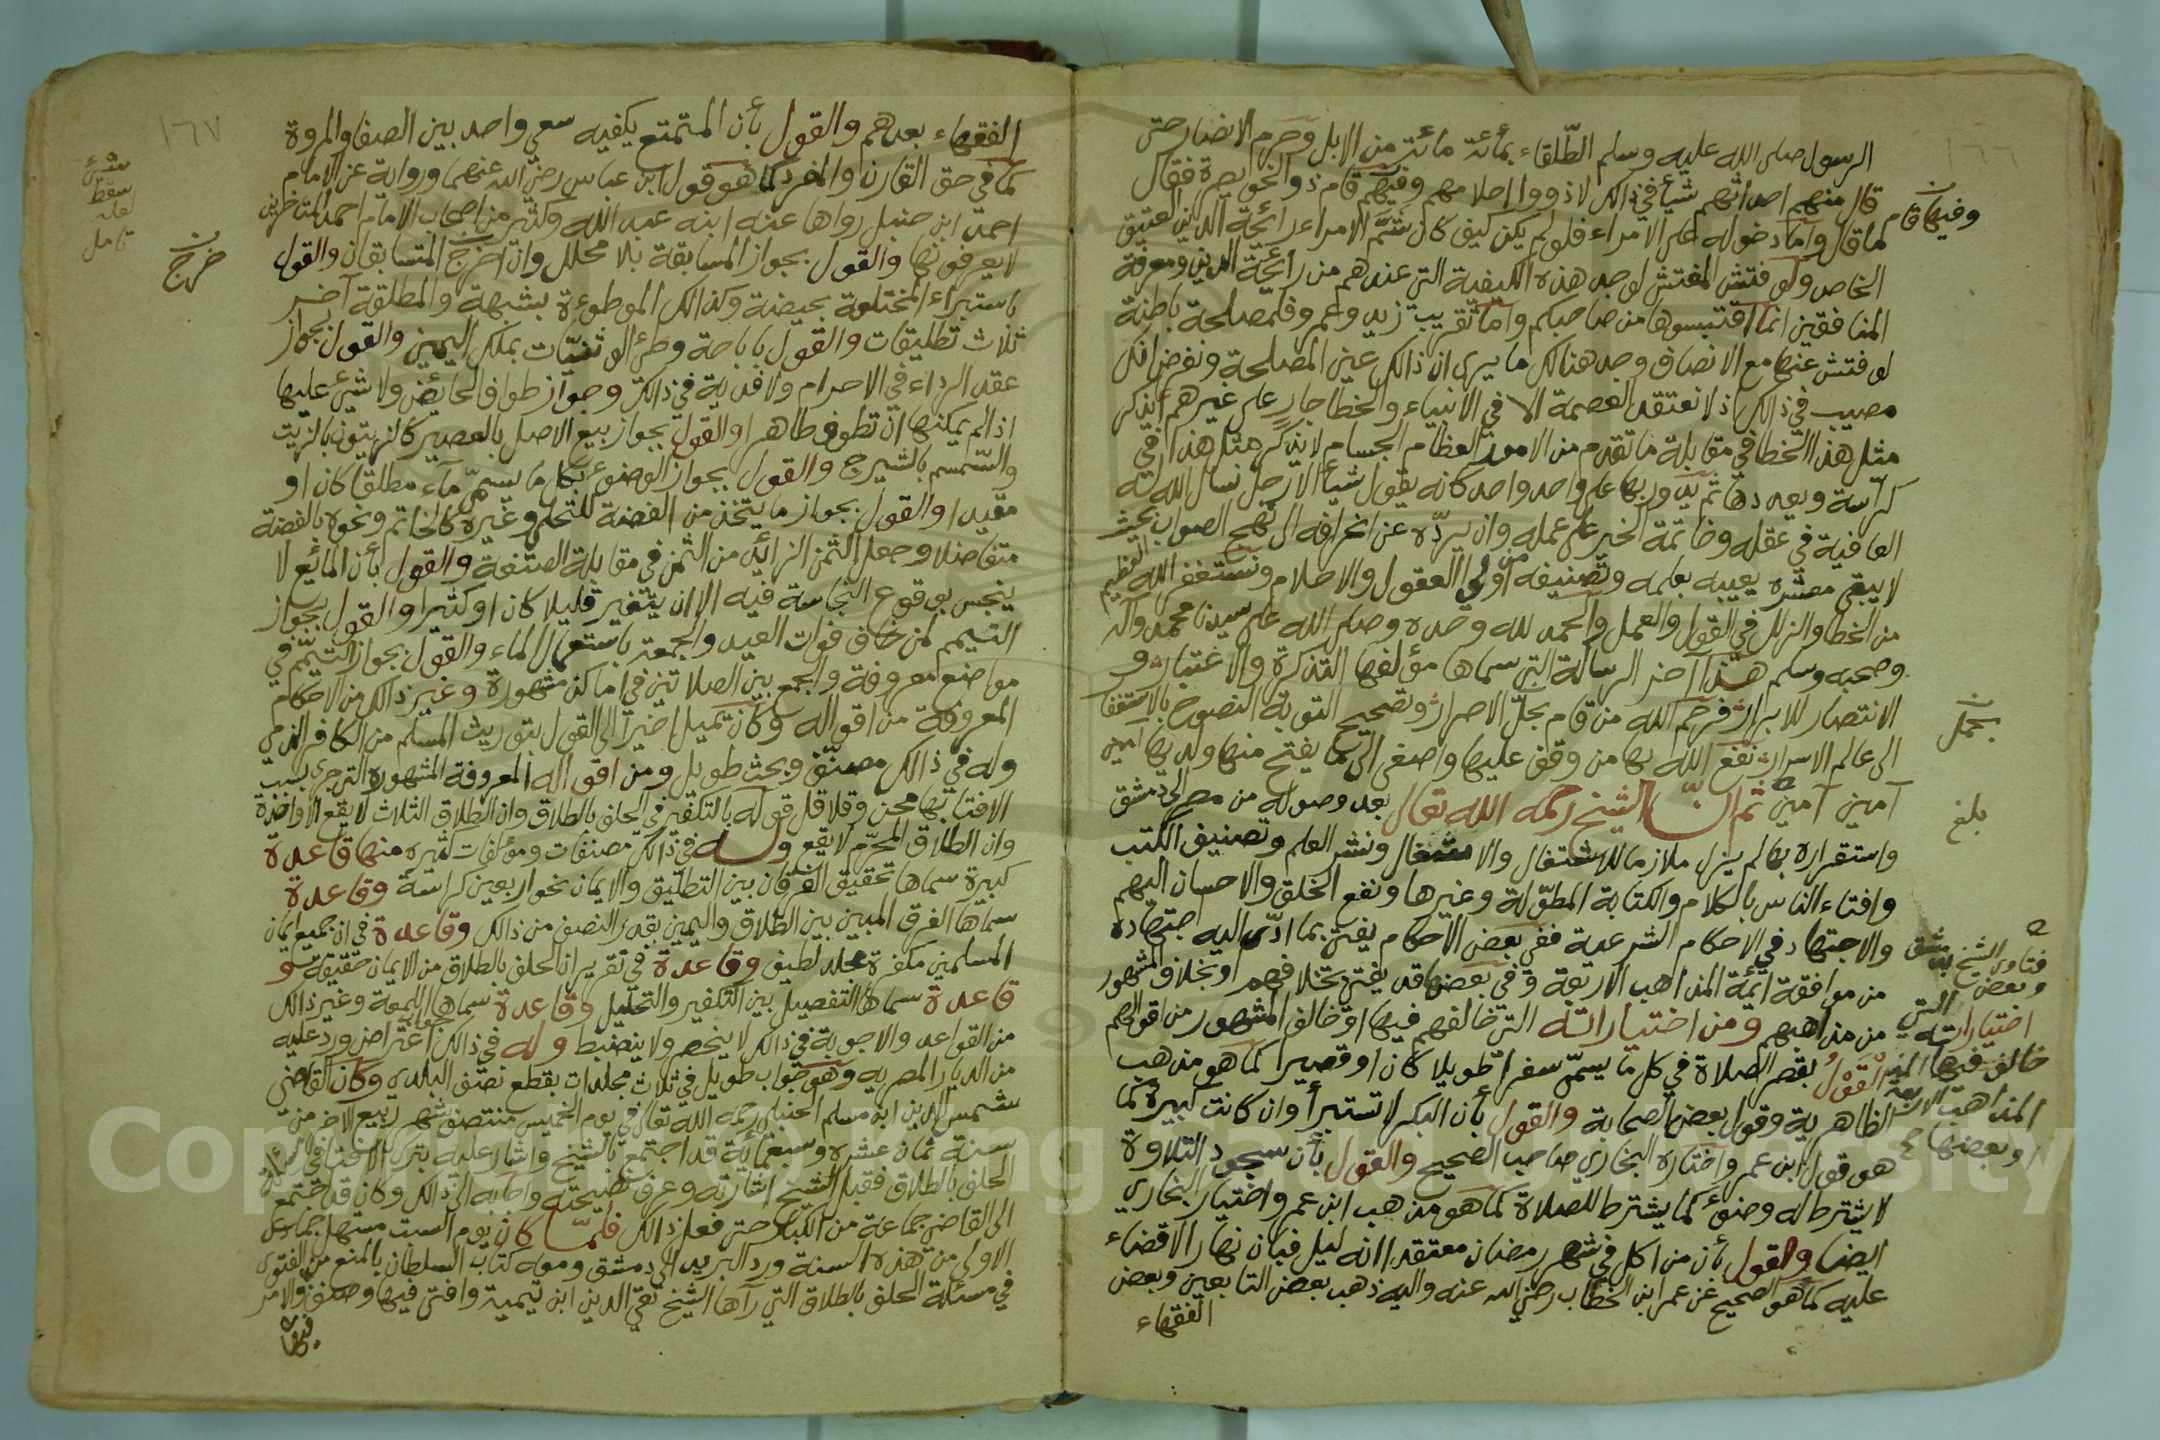 الرسول صلى الله عليه وسلم الطّلقاء بمائة مائة من الابل وحرم الانصار حتى
قال منهم احداثهم شيأ في ذالك لا ذووا احلامهم وفيهم قام ذو الخويصرة فقال
وفيها قام
كما قال وأما دخوله على الامراء فلو لم يكن كيف كان شمّ الامراء رائحة الدين العتيق
الخاص ولو فتش المفتش لوجد هذه الكيفية التي عندهم من رائحة الدين ومعرفة
المنافقين انما اقتبسوها من صاحبكم وأما تقريب زيد وعمرو فلمصلحة باطنة
لو فتش عنها مع الانصاف وجد هنالك ما يرى ان ذالك عين المصلحة ونفرض انك
مصيب في ذالك اذ لا نعتقد العصمة الا في الانبياء والخطا جار على غيرهم أيذكر
مثل هذا الخطا في مقابلة ما تقدم من الامور العظام الجسام لا يذكر مثل هذا في
كراسة ويعددها ثم يدور بها على واحد واحد كانه يقول شيأ الا رجل نسأل الله له
العافية في عقله وخاتمة الخير على عمله وان يردّه عن انحرافه الى نهج الصواب بحيث
لا يبقى معشره يعيبه بعلمه وتصنيفه من أولي العقول والاحلام ونستغفر الله العظيم
من الخطا والزلل في القول والعمل والحمد لله وحده وصلى الله على سيدنا محمد وآله
وصحبه وسلم هذا آخر الرسالة التي سماها مؤلفها التذكرة والاعتبار و
الانتصار للابرار فرحم الله من قام بحلّ الاصرار وتصحيح التوبة النصوح بالاستغفا
بحمل
الى عالم الاسرار نفع الله بها من وقف عليها واصغى الى ما يفتح منها ولديها آمين
آمين آمين ثم انّ الشيخ رحمه الله تعالى بعد وصوله من مصر الى دمشق
بلغ
واستقراره بها لم يزل ملازما للاشتغال والاشغال ونشر العلم وتصنيف الكتب
وافتاء الناس بالكلام والكتابة المطوّلة وغيرها ونفع الخلق والاحسان اليهم
والاجتهاد في الاحكام الشرعية ففي بعض الاحكام يفتي بما ادّى اليه اجتهاده
فتاوى الشيخ بدمشق
وبعض
اختياراته التي
خالف فيها
المذاهب الاربعة
او بعضها
من موافقة ايمة المذاهب الاربعة وفي بعضها قد يفتي بخلافهم او بخلاف المشهور
من مذاهبهم ومن اختياراته التي خالفهم فيها او خالف المشهور من اقوالهم
القول بقصر الصلاة في كل ما يسمّى سفرا طويلا كان او قصيرا كما هو مذهب
الظاهرية وقول بعض الصحابة والقول بأن البكر لا تستبرأ وان كانت كبيرة كما
هو قول ابن عمر واختاره البخاري صاحب الصحيح والقول بأن سجود التلاوة
لا يشترط له وضوء كما يشترط للصلاة كما هو مذهب ابن عمر واختيار البخاري
ايضا والقول بأن من اكل في شهر رمضان معتقدا انه ليل فبان نهارا لا قضاء
عليه كما هو الصحيح عن عمر ابن الخطاب رضي الله عنه واليه ذهب بعض التابعين وبعض
الفقهاء
١٦٧
الفقهاء بعدهم والقول بأن المتمتع يكفيه سعي واحد بين الصفا والمروة
كما في حق القارن والمفرد كما هو قول ابن عباس رضي الله عنهما ورواية عن الامام
شئ
سقط
لعله
تامل
احمد ابن حنبل رواها عنه ابنه عبد الله وكثير من اصحاب الامام احمد المتأخرين
لا يعرفونها والقول بجواز المسابقة بلا محلل وان اخرج المتسابقان والقول
خرج
باستبراء المختلعة بحيضة وكذالك الموطوءة بشبهة والمطلقة آخر
ثلاث تطليقات والقول باباحة وطئ الوثنيّات بملك اليمين والقول بجواز
عقد الرداء في الاحرام ولا فدية في ذالك وجواز طواف الحائض ولا شئ عليها
اذا لم يمكنها ان تطوف طاهرا والقول بجواز بيع الاصل بالعصير كالزيتون بالزيت
والسّمسم بالشيرج والقول بجواز الوضوء بكل ما يسمّى مآء مطلقا كان او
مقيدا والقول بجواز ما يتخذ من الفضة للتحلي وغيره كالخاتم ونحوه بالفضة
متفاضلا وجعل الثمن الزائد من الثمن في مقابلة الصنعة والقول بأن المائع لا
ينجس بوقوع النجاسة فيه الا ان يتغير قليلا كان او كثيرا والقول بجواز
التيمم لمن خاف فوات العيد والجمعة باستعمال الماء والقول بجواز التيمّم في
مواضع معروفة والجمع بين الصلاتين في اماكن مشهورة وغير ذالك من الاحكام
المعروفة من اقواله وكان تميل اخيرا الى القول بتوريث المسلم من الكافر الذمي
وله في ذالك مصنّف وبحث طويل ومن اقواله المعروفة المشهورة التي جرى بسبب
الافتا بها محن وقلاقل قوله بالتكفير في الحلف بالطلاق وان الطلاق الثلاث لا يقع الا واحدة
وان الطلاق المحرّم لا يقع وله في ذالك مصنفات ومؤلفات كثيره منها قاعدة
كبيرة سماها تحقيق الفرقان بين التطليق والايمان نحو اربعين كراسة وقاعدة
سماها الفرق المبين بين الطلاق واليمين بقدر النصف من ذالك وقاعدة في ان جميع ايمان
المسلمين مكفرة مجلد لطيف وقاعدة في تقرير ان الحلف بالطلاق من الايمان حقيقة و
قاعدة سماها التفصيل بين التكفير والتحليل وقاعدة سماها اللمعة وغير ذالك
من القواعد والاجوبة في ذالك لا ينحصر ولا ينضبط وله في ذالك جواب اعتراض ورد عليه
من الديار المصريه وهو جواب طويل في ثلاث مجلدات بقطع نصف البلدي وكان القاضي
شمس الدين ابن مسلم الحنبلي رحمه الله تعالى في يوم الخميس منتصف شهر ربيع الاخر من
سنة ثمان عشره وسبعمائة قد اجتمع بالشيخ واشار عليه بترك الافتا في مسألة
الحلف بالطلاق فقبل الشيخ اشارته وعرف نصيحته واجابه الى ذالك وكان قد اجتمع
الى القاضي جماعة من الكبار حتى فعل ذالك فلمّا كان يوم السبت مستهل جمادى
الاولى من هذه السنة ورد البريد الى دمشق ومعه كتاب السلطان بالمنع من الفتوى
في مسئلة الحلف بالطلاق التي رآها الشيخ تقي الدين ابن تيمية وافتى فيها وصنف والامر
Copyright © King Saud University